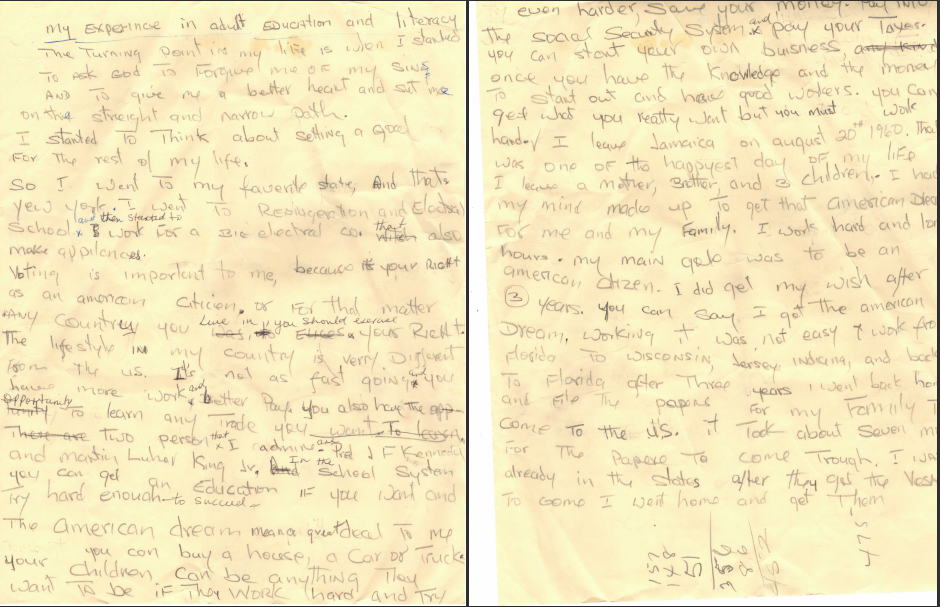 my Experince in adult Education and literacy
The Turning Point in my life is when I started
To ask God To Forgive me OF my Sins
AND TO give me a better heart and set me
on the straight and narrow Path.
I started TO Think about setting a goal
For The rest of my life.
So I went To my favorite state, And thats
New York. I went To Refrigeration and Electral
and then started to
School work For a BIG electral co. that also
make appliances.
Voting is important to me, because it's your Right
as an american Citicien, or For that matter
ANY Country you Live in, you should exercise your Right.
The lifestyle IN my country is very Different
From The US. It's not as fast going and you
have more work, and better Pay. you also have the
opportunity To learn any Trade you want To learn.
There are Two person that I admire are Pre J F Kennedy
and martin Luher King Jr. In the School System
you can get an Education IF you want and
Try hard enough to succeed.
The American dream mean a great deal To me
you can buy a house, a Car or Truck
your children can be anything They
want To be if They work hard and Try
even harder, Save your money. Pay into
The Social Security System and pay your Taxes.
you can start your own buisness,
once you have the Knowledge and the money
To start out and have good workers. you can
get what you really want but you must work
hard. I leave Jamaica on august 20th 1960. That
was one OF the happyest day OF my life
I leave a mother, Brother, and 3 children. I had
my mind made up To get that american Dream
For me and my Family. I work hard and long
hours. my main gole was to be an
american citizen. I did get my wish after
3 years. you can say I got The american
Dream, working it was not easy I work from
Florida To Wisconsin, Jersey, Indiana, and back
To Florida after Three years I went back home
and File The papers For my Family To
come To the U.S. it Took about Seven m
For The Papers To come Trough. I was
already in the States after They got the Visa
To come I went home and get Them